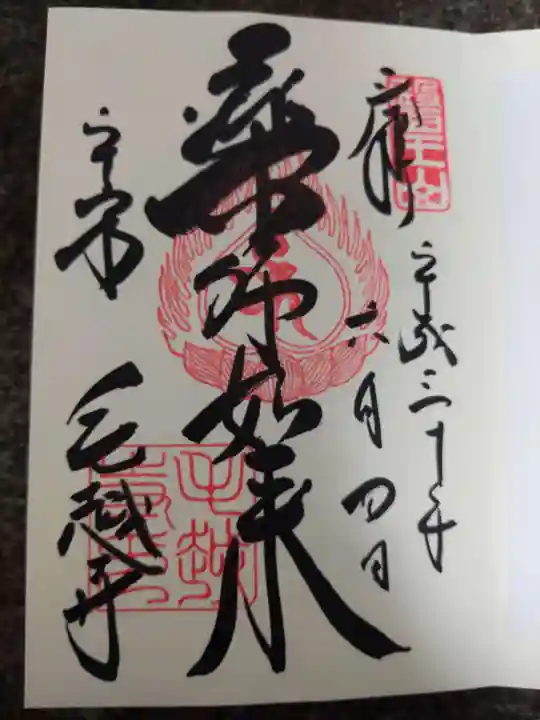 奉拝
平成三十年
六月四日
薬師如来
平泉
毛越寺
醫王山
毛越寺